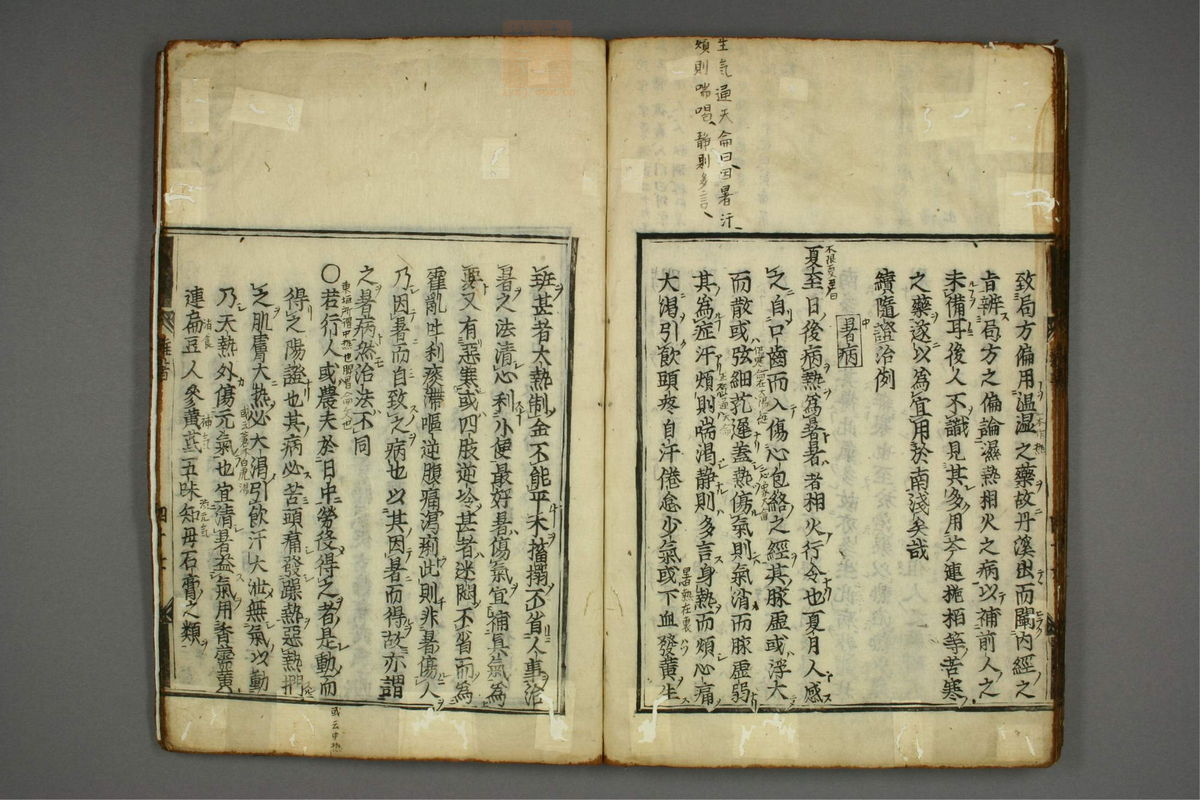 生気通天侖曰因暑汗、
煩則喘喝、静則多言、
致局方偏用温湿之藥故丹溪出而闡内經之
旨辨局方之偏論濕熱相火之病以補前人之
未備耳後人不識見其多用芩連梔栢等苦寒
之藥遂以為宜用於南淺矣哉
續隨證治例
暑病
夏至日後病熱為暑暑者相火行令也夏月人感
之自口齒而入傷心包絡之經其脉虚或浮大
而散或弦細芤遲蓋熱傷氣則氣消而脉虚弱
其為症汗煩則喘渇静則多言身熱而煩心痛
大渇引飲頭疼自汗倦怠少氣或下血發黄生
班甚者大熱制金不能平木搐搦不省人事治
暑之法清心利小便最好暑傷氣宜補真氣為
要又有惡寒或四肢逆冷甚者迷悶不省而為
霍亂吐利痰滞嘔逆腹痛瀉痢此則非暑傷人
乃因暑而自致之病也以其因暑而得故亦謂
之暑病然治法不同
○若行人或農夫於日中勞役得之者是動而
得之陽證也其病必苦頭痛發躁熱惡熱捫
之肌膚大熱必大渇引飲汗大泄無氣以動
乃天熱外傷元氣也宜清暑益氣用香薷黄
連扁豆人參黄茋五味知母石膏之類
或云中热